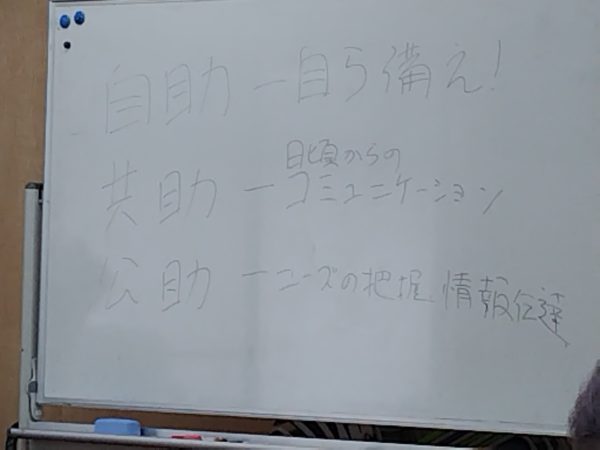 自助 ー 自ら備え!
日頃からの
共助 ー コミュニケーション
公助 ー ニーズの把握 情報伝達